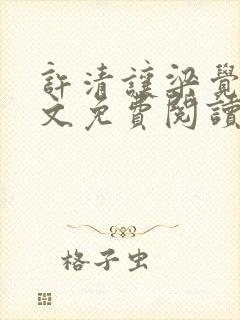 許清讓梁覺
文免費閱讀
格子虫